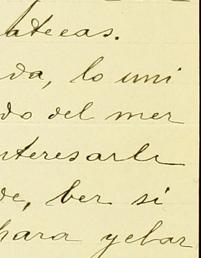 atecas.
da, lo uni
do del mer
nteresarle
de, ber si
para yebar